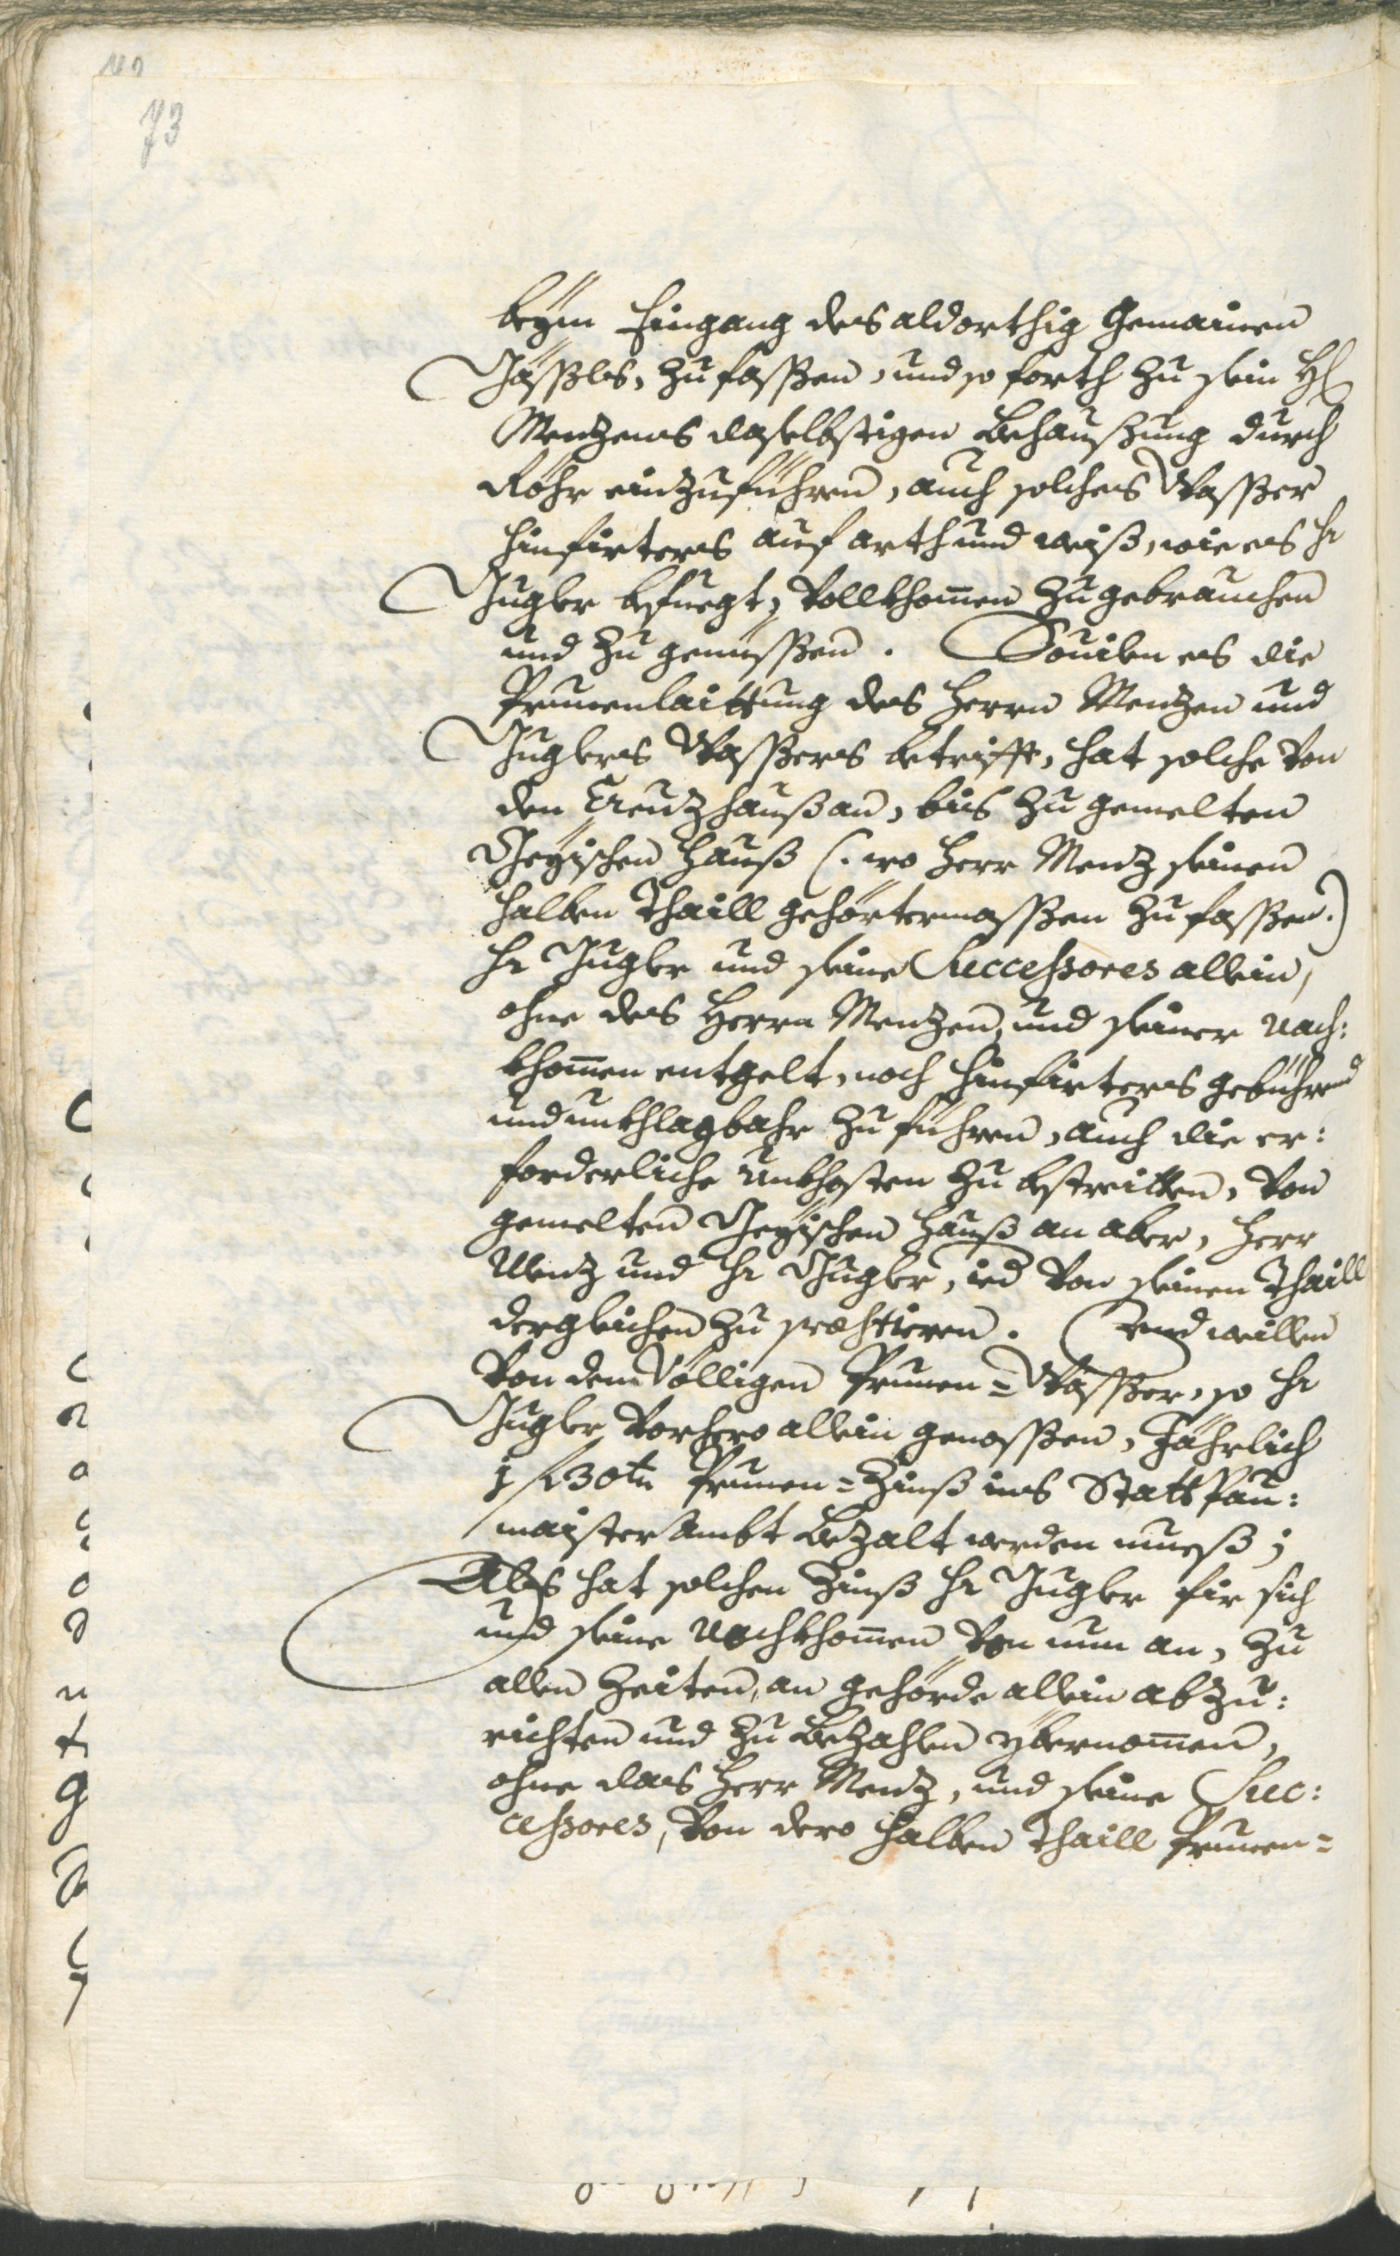 73
beÿm Eingang des aldorthig Gemainen
Gässles, zufassen, und so forth zu sein H:
Mentzens daselbstigen Behaußung durch
Röhr einzuführen, auch solches Wasser
hinfirters auf arth und weiß, wie es H:
Jugler befuegt, vollkhomen zugebrauchen
und zu genüessen. Souilen es die
Prunenlaittung des Herrn Mentzen und
Juglers Wassers betrifft, hat solche von
den Creutzhauß an, bis zu gemelten
Geÿischen Hauß (: wo Herr Mentz seinen
halben Thaill gehörtermassen zufassen:)
H: Jugler und seine Successores allein,
ohne des Herrn Mentzen, und seiner Nach:
khomen entgelt, noch hinfirters gebührend
und unkhlagbahr zu führen, auch die er:
forderliche Unkhosten zu bestreitten, von
gemelten Geÿischen Hauß an aber, Herr
Mentz und H: Jugler, ied von seinen Thaill
dergleichen zu præstieren. Und weillen
von dem völligen Prunen=Wasser, so H:
Jugler vorhero allein genossen, Jährlich
1 f 30 kr Prunen=Zinß ins Statt Pau:
maister Ambt bezalt werden mueß;
Als hat solchen Zinß H: Jugler fir sich
und seine Nachkhomen von nun an, zu
allen Zeiten, an gehörde allein abzu:
richten und zu bezahlen ybernomen,
ohne das Herr Mentz, und seine Suc:
cessores, von dero halben Thaill Prunen=